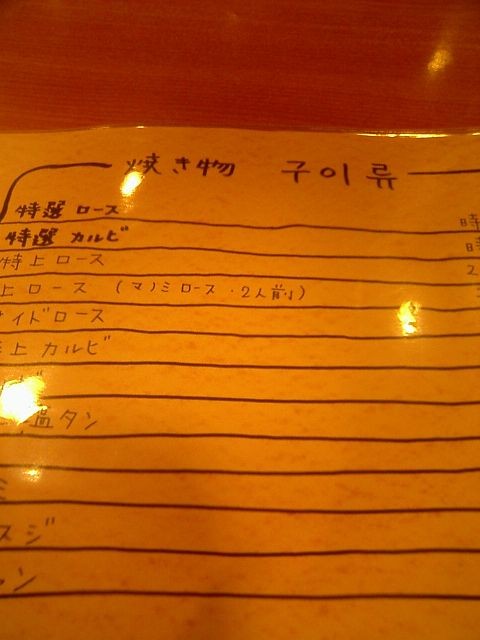 焼き物 구이류
特選 ロース 時
特選 カルビ 時
特上ロース 2
上ロース (マルミロース・2人前)
サイドロース
上 カルビ
塩タン
ミ
スジ
ン